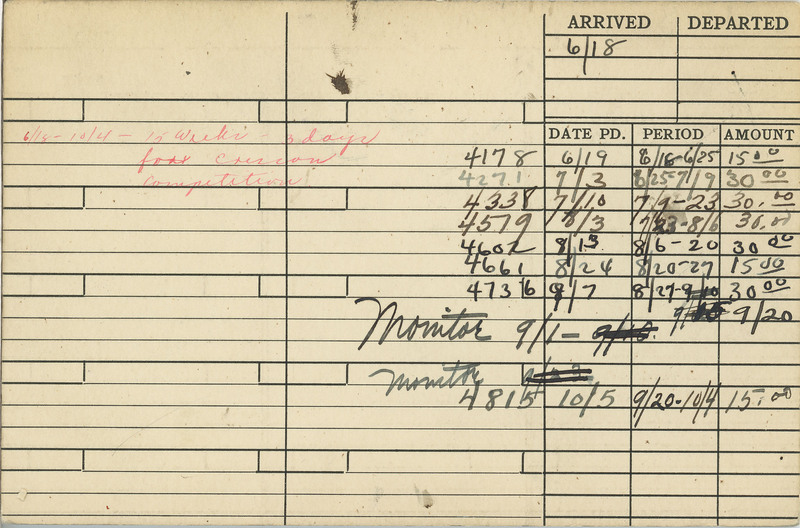 ARRIVED DEPARTED
6/18
DATE PD. PERIOD AMOUNT
6/18 - 10/4 - 15 Weeks - 3 days
for Cresson
Competition
4178 6/19 6/18-6/25 15.00
4271 7/3 6/25-7/9 30.00
4338 7/10 7/9-23 30.00
4579 8/3 7/23-8/6 30.00
4602 8/13 8/6-20 30.00
4661 8/24 8/20-27 15.00
4736 9/7 8/27-9/10 30.00
9/20
Monitor 9/1 -
Monitor
4815 10/5 9/20-10/4 15.00